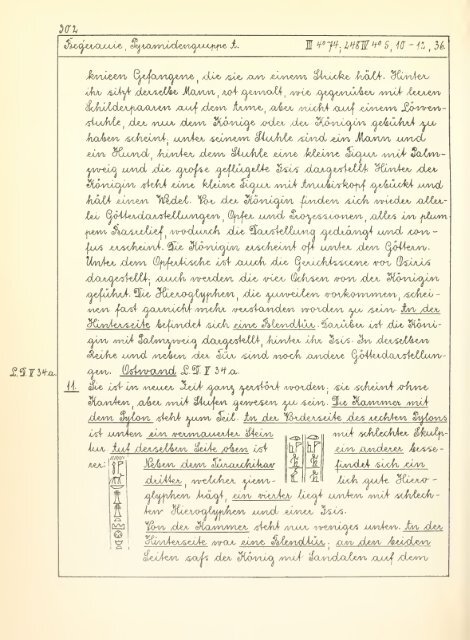 302
Begerauie, Pyramidengruppe A. III 4° 74, 248 IV 4° 5, 10 - 12, 36.
knieen Gefangene, die sie an einem Stricke hält. Hinter
ihr sitzt derselbe Mann, rot gemalt, wie gegenüber mit leeren
Schilderpaaren auf dem Arme, aber nicht auf einem Löwen-
stuhle, der nur dem Könige oder der Königin gebührt zu
haben scheint, unter seinem Stuhle sind ein Mann und
ein Hund, hinter dem Stuhle eine kleine Figur mit Palm-
zweig und die große geflügelte Isis dargestellt Hinter der
Königin steht eine kleine Figur mit Anubiskopf gebückt und
hält einen Wedel. Vor der Königin finden sich wieder aller-
lei Götterdarstellungen, Opfer und Prozessionen, alles in plum-
pem Basrelief, wodurch die Darstellung gedrängt und con-
fus erscheint. Die Königin erscheint oft unter den Göttern.
Unter dem Opfertische ist auch die Gerichtsscene vor Osiris
dargestellt; auch werden die vier Ochsen von der Königin
geführt. Die Hieroglyphen, die zuweilen vorkommen, schei-
nen fast garnicht mehr verstanden worden zu sein. An der
Hinterseite befindet sich eine Blendtür. Darüber ist die Köni-
gin mit Palmzweig dargestellt, hinter ihr Isis. In derselben
Reihe und neben der Tür sind noch andere Götterdarstellun-
L.D. V 34a. gen. Ostwand L.D. V 34a.
11. Sie ist in neuer Zeit ganz zerstört worden; sie scheint ohne
Kanten, aber mit Stufen gewesen zu sein. Die Kammer mit
dem Pylon steht zum Teil. An der Vorderseite des rechten Pylons
ist unten ein vermauerter Stein mit schlechter Skulp-
tur. Auf derselben Seite oben ist ein anderer besse-
rer: Neben dem Türarchitrav findet sich ein
dritter, welcher ziem- lich gute Hiero-
glyphen trägt, ein vierter liegt unten mit schlech-
ten Hieroglyphen und einer Isis.
Von der Kammer steht nur weniges unten. An der
Hinterseite war eine Blendtür; an den beiden
Seiten saß der König mit Sandalen auf dem